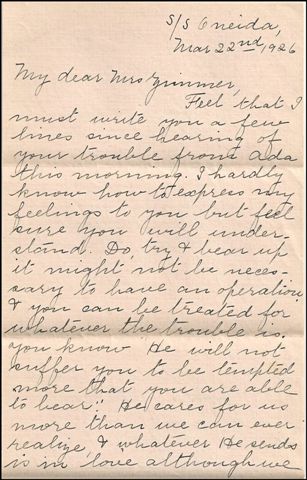 S/S Oneida,
Mar 22nd, 1926
My dear Mrs Zimmer,
Feel that I
must write you a few
lines since hearing of
your trouble from Ada
this morning. I hardly
know how to express my
feelings to you but feel
sure you will under-
stand. Do, try & bear up
it might not be neces-
sary to have an operation
& you can be treated for
whatever the trouble is,
you know "He will not
suffer you to be tempted
more that you are able
to bear". He cares for us
more than we can ever
realize, & whatever He sends
is in love although we